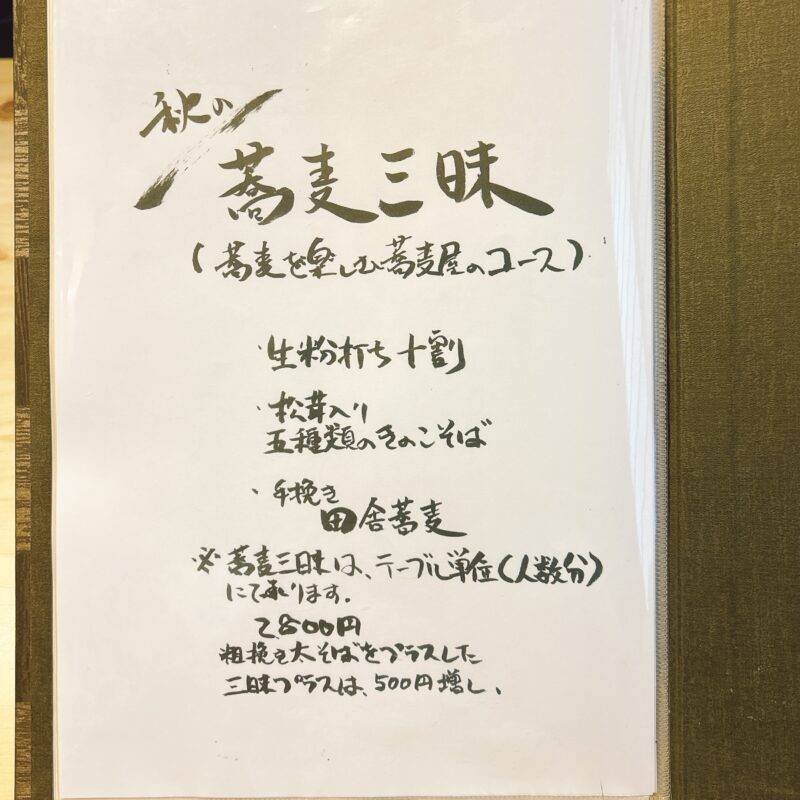 秋の
蕎麦三昧
(蕎麦を楽しむ蕎麦屋のコース)
・生粉打ち十割
・松茸入り
五種類のきのこそば
・手挽き
田舎蕎麦
※蕎麦三昧は、テーブル単位(人数分)
にて承ります。
2800円
粗挽き太そばをプラスした
三昧プラスは、500円増し、